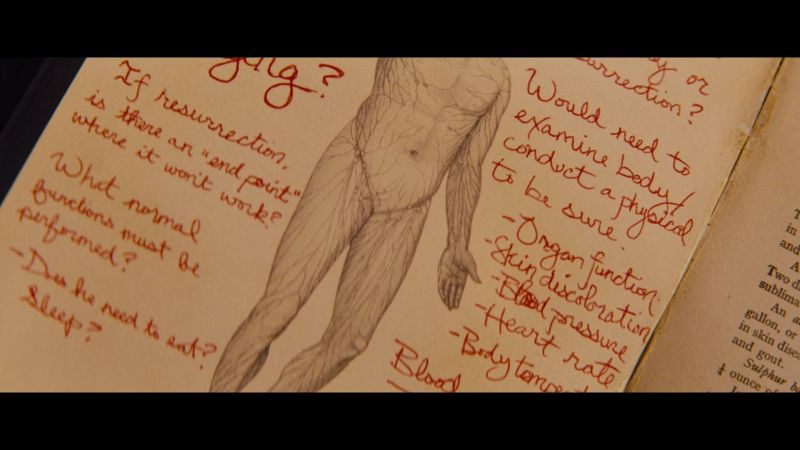 If resurrection,
is there an "end point"
where it won't work?
What normal
functions must be
performed?
- Does he need to eat?
Sleep?
or
Would need to
examine body/
conduct a physical
to be sure.
- Organ function
- Skin discoloration
- Blood pressure
- Heart rate
- Body
Blood
in
and
Two
An
gallon, or
in skin
and gout.
Sulphur
¼ ounce